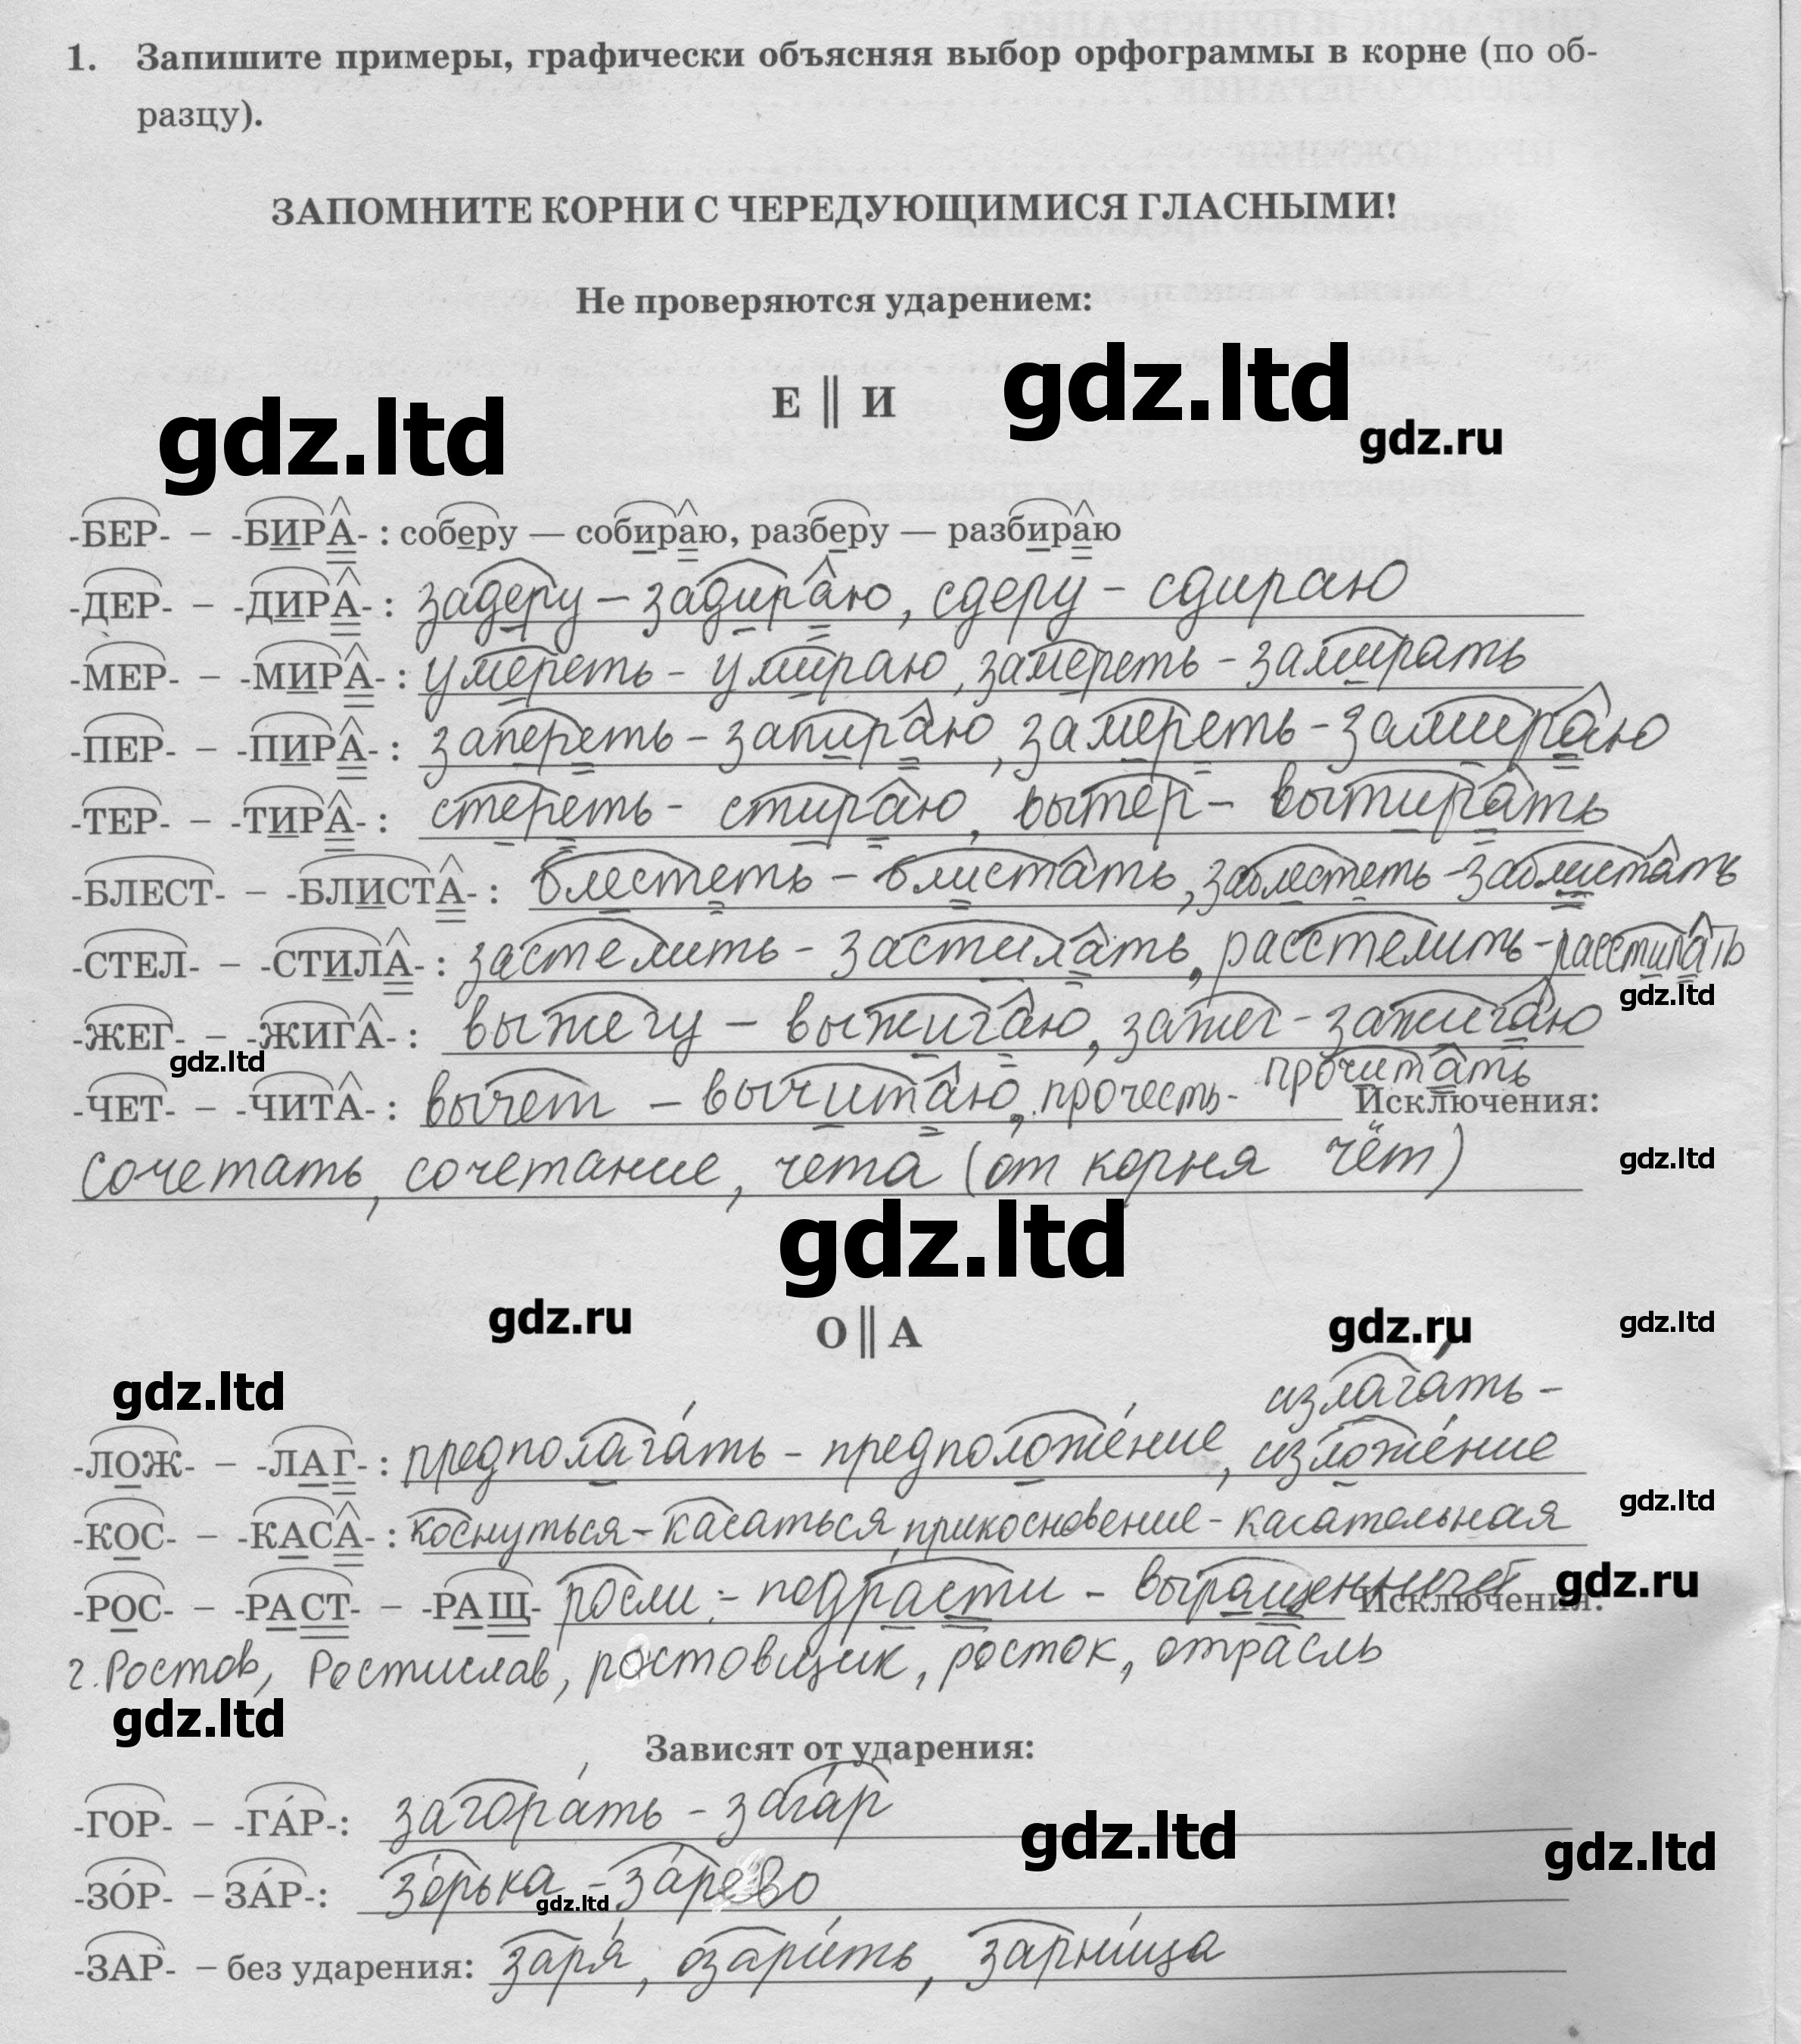 1. Запишите примеры, графически объясняя выбор орфограммы в корне (по об-
разцу).
ЗАПОМНИТЕ КОРНИ С ЧЕРЕДУЮЩИМИСЯ ГЛАСНЫМИ!
Не проверяются ударением:
Е || И
gdz.ltd
gdz.ltd
gdz.ru
-БЕР- – -БИРА- : соберу — собираю, разберу — разбираю
-ДЕР- – -ДИРА- : задеру – задираю, сдеру - сдираю
-МЕР- – -МИРА- : умереть - умираю, замереть - замирать
-ПЕР- – -ПИРА- : запереть - запираю, замереть - замираю
-ТЕР- – -ТИРА- : стереть - стираю, вытер - вытирать
-БЛЕСТ- – -БЛИСТА- : блестеть - блистать, заблестеть - заблистать
-СТЕЛ- – -СТИЛА- : застелить - застилать, расстелить - расстилать
gdz.ltd
-ЖЕГ- – -ЖИГА- : выжегу - выжигаю, зажег - зажигаю
gdz.ltd
-ЧЕТ- – -ЧИТА- : вычет - вычитаю, прочесть - прочитать Исключения:
сочетать, сочетание, чета (от корня чёт)
gdz.ltd
gdz.ltd
gdz.ru
О || А
gdz.ru
gdz.ltd
gdz.ltd
излага́ть -
-ЛОЖ- – -ЛАГ- : предполага́ть - предположе́ние, изложе́ние
gdz.ltd
-КОС- – -КАСА- : коснуться - касаться, прикосновение - касательная
-РОС- – -РАСТ- – -РАЩ- росли - подрасти - выращенный Исключения:
gdz.ru
г. Ростов, Ростислав, ростовщик, росток, отрасль
gdz.ltd
Зависят от ударения:
-ГОР- – -ГА́Р-: загора́ть - зага́р
gdz.ltd
gdz.ltd
-ЗО́Р- – ЗА́Р-: зо́рька - за́рево
gdz.ltd
-ЗАР- – без ударения: заря́, озари́ть, зарни́ца